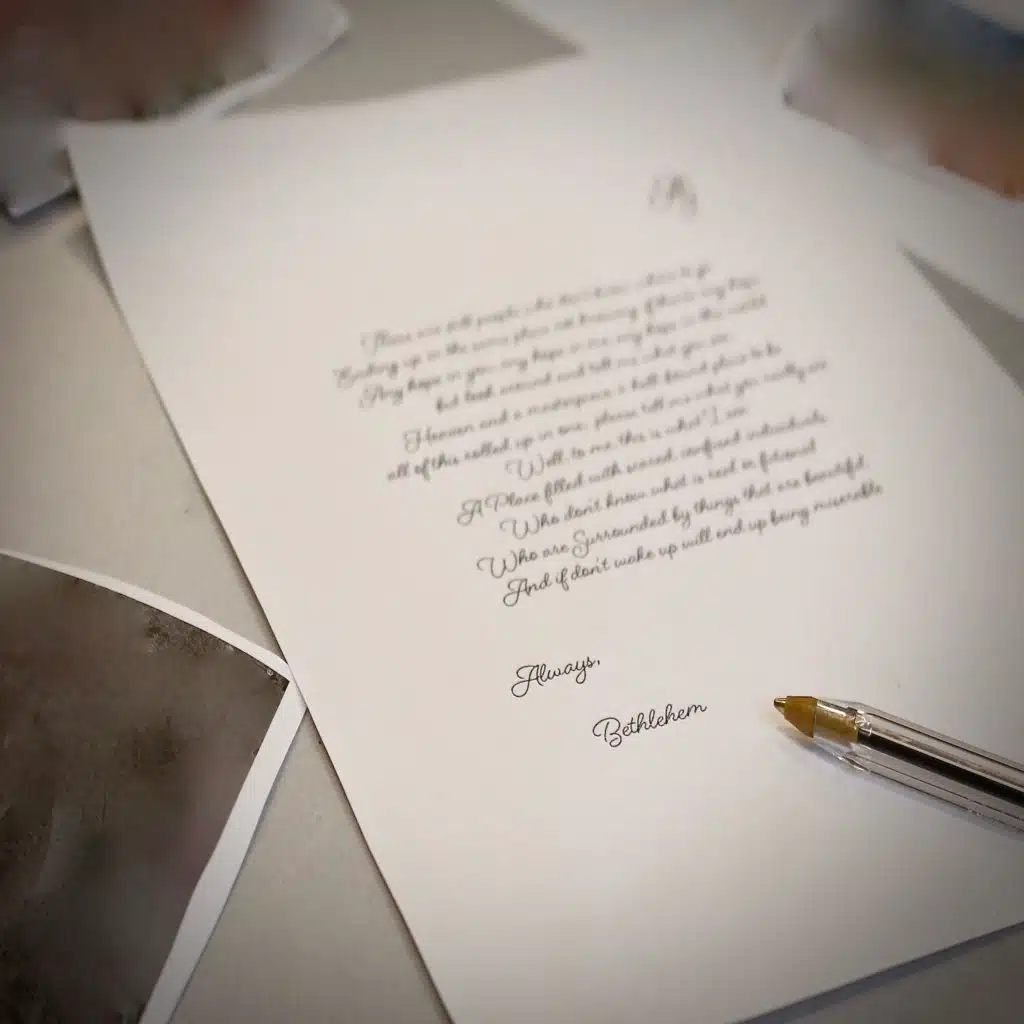 There are still people who don't know where to go
Ending up in the same place not knowing if there's any hope
Any hope in you, any hope in me, any hope in this world
but look around and tell me what you see
Heaven and a masterpiece a hell bound place to be
all of this rolled up in one, please tell me what you really are
Well, to me, this is what I see
A Place filled with scared, confused individuals
Who don't know what is real or fictional
Who are Surrounded by things that are beautiful
And if don't wake up will end up being miserable
Always,
Bethlehem